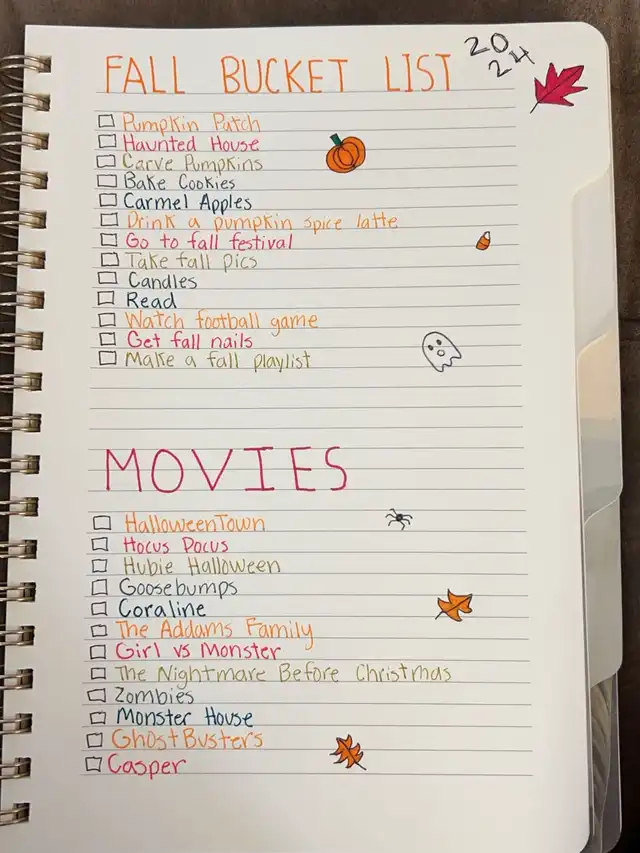 2024
FALL BUCKET LIST
Pumpkin Patch
Haunted House
Carve Pumpkins
Bake Cookies
Carmel Apples
Drink a pumpkin spice latte
Go to fall festival
Take fall pics
Candles
Read
Watch football game
Get fall nails
Make a fall playlist
MOVIES
HalloweenTown
Hocus Pocus
Hubie Halloween
Goosebumps
Coraline
The Addams Family
Girl vs Monster
The Nightmare Before Christmas
Zombies
Monster House
GhostBusters
Casper